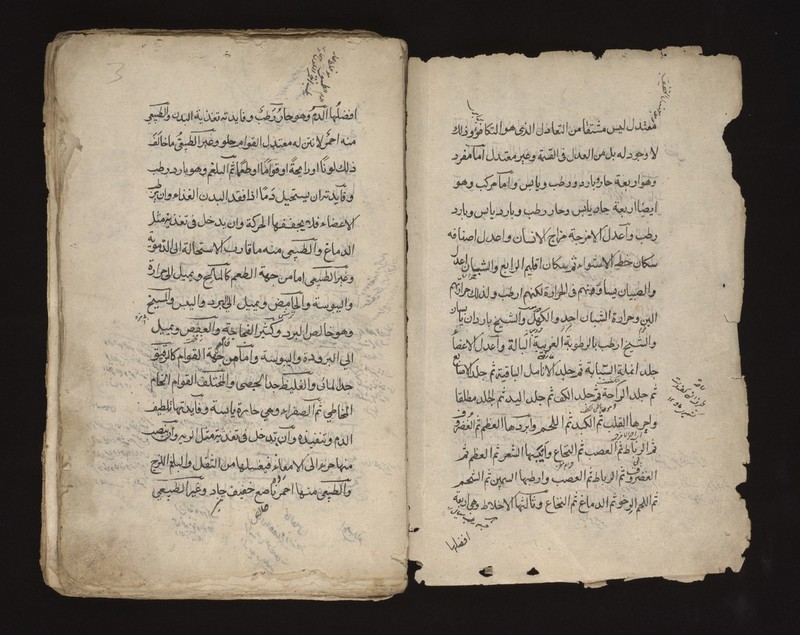 معتدل ليس مشتقا من التعادل الذى هو التكافؤ وذلك
لا وجود له بل من العدل فى القسمة وغير معتدل اما مفرد
وهو اربعة حار وبارد ورطب ويابس واما مركب وهو
ايضا اربعة حار يابس وحار رطب وبارد يابس وبارد
رطب واعدل الامزجة مزاج الانسان واعدل اصنافه
سكان خط الاستواء ثم سكان اقليم الرابع والشبان اعدل
والصبيان يساوونهم فى الحرارة لكنهم ارطب ولذلك حرارتهم
الين وحرارة الشبان احد والكهل والشيخ باردان يابسان
والشيخ ارطب بالرطوبة الغريبة البالة واعدل الاعضا
جلد انملة السبابة ثم جلد الانامل الباقية ثم جلد الاصابع
ثم جلد الراحة ثم جلد الكف ثم جلد اليد ثم الجلد مطلقا
واحرها القلب ثم الكبد ثم اللحم وابردها العظم ثم الغضروف
ثم الرباط ثم العصب ثم النخاع وايبسها الشعر ثم العظم ثم
الغضروف ثم الرباط ثم العصب وارطبها السمين ثم الشحم
ثم اللحم الرخو ثم الدماغ ثم النخاع وثالثها الاخلاط وهى اربعة
افضلها
3
افضلها الدم وهو حار رطب وفايدته تغذية البدن والطبيعى
منه احمر لا نتن له معتدل القوام حلو وغير الطبيعى ما خالف
ذلك لونا او رايحة او قواما او طعما ثم البلغم وهو بارد رطب
وفايدته ان يستحيل دما اذا فقد البدن الغذاء وان يرطب
الاعضاء فلا يجففها الحركة وان يدخل فى تغذية مثل
الدماغ والطبيعى منه ما قارب الاستحالة الى الدموية
وغير الطبيعى اما من جهة الطعم كالمالح ويميل الى الحرارة
واليبوسة والحامض ويميل الى البرد واليبس والمسيخ
وهو خالص البرد وكثير الفجاجة والعفص ويميل
الى البرودة واليبوسة واما من جهة القوام كالرقيق
جدا المائى والغليظ جدا الجصى والمختلف القوام الخام
المخاطى ثم الصفراء وهى حارة يابسة وفايدتها تلطيف
الدم وتنفيذه وان تدخل فى تغذية مثل الرية وان ينصب
منها جزء الى الامعاء فيغسلها من الثفل والبلغم اللزج
والطبيعى منها احمر ناصع خفيف حاد وغير الطبيعى